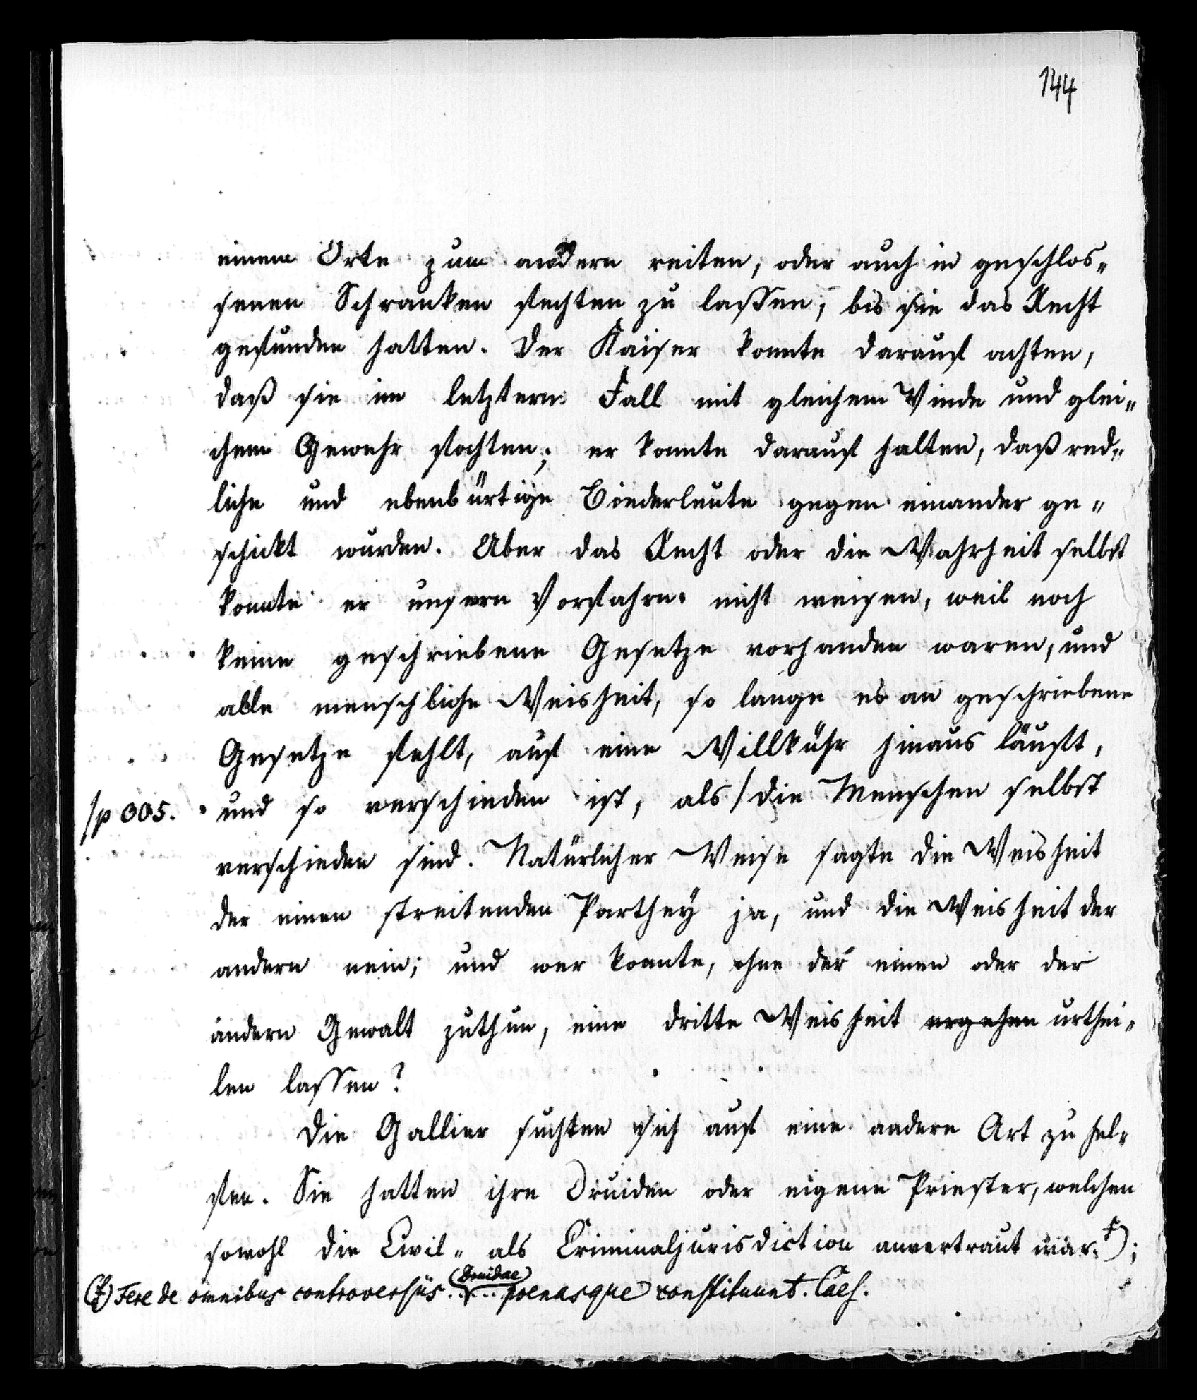 144
einem Orte zum andern reiten, oder auch in geschlos„
senen Schranken fechten zu lassen, bis sie das Recht
gefunden hatten. Der Kaiser konnte darauf achten,
daß sie im letztern Fall mit gleichem Winde und glei„
chem Gewehr fochten; er konnte darauf halten, daß red„
liche und ebenbürtige Biederleute gegen einander ge„
schickt wurden. Aber das Recht oder die Wahrheit selbst
konnte er unsern Vorfahrn nicht weisen, weil noch
keine geschriebene Gesetze vorhanden waren, und
alle menschliche Weisheit, so lange es an geschriebene
Gesetze fehlt, auf eine Willkühr hinaus läuft,
/p 005. und so verschieden ist, als / die Menschen selbst
verschieden sind. Natürlicher Weise sagte die Weisheit
der einen streitenden Parthey ja, und die Weisheit der
andern nein; und wer konnte, ohne der einen oder der
andern Gewalt zuthun, eine dritte Weisheit ergehen urthei„
len lassen?
Die Gallier suchten sich auf eine andere Art zu hel„
fen. Sie hatten ihre Druiden oder eigene Priester, welchen
sowohl die Civil„ als Criminaljurisdiction anvertraut war. †);
(†) Fere de omnibus controversiis .. (Druidae) .. poenasque constituunt. Caes.